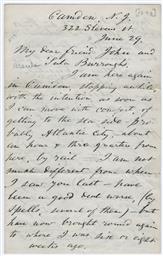 Camden, N. J.
322 Stevens st.
June 29.
My dear friend John and
Sula Burroughs,
I am here again
in Camden, stopping awhile,
with the intention, as soon as
I can move with comfort, of
getting to the sea side, pro-
bably Atlantic City, about
an hour & three quarters from
here, by rail — I am not
much different from when
I saw you last — have
been a good deal worse, (by
spells, several of them) — but
have now brought round again
to where I was six or eight
weeks ago.